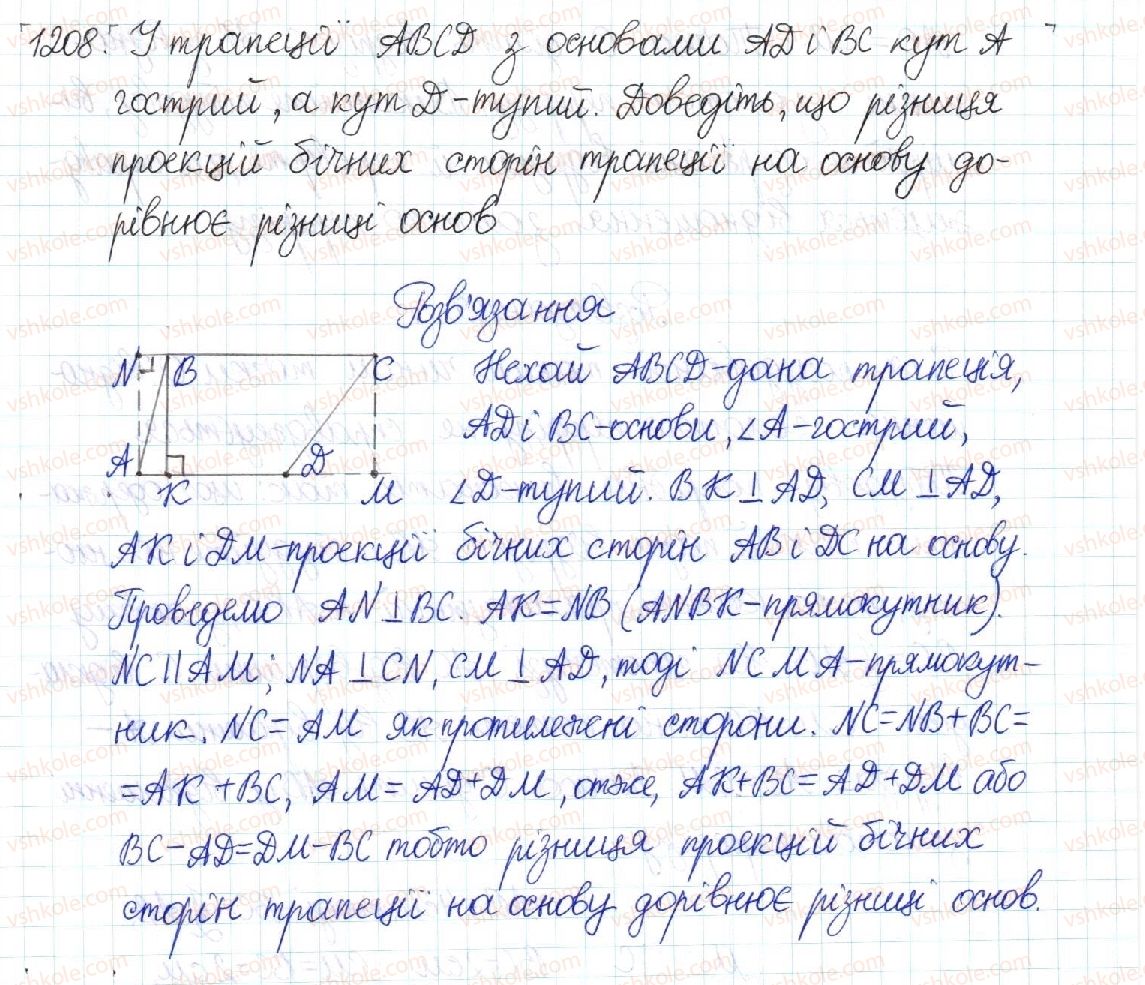 1208. У трапеції ABCD з основами AD і BC кут A
гострий, а кут D-тупий. Доведіть, що різниця
проекцій бічних сторін трапеції на основу до-
рівнює різниці основ
Розв'язання
N B C
A K D M
Нехай ABCD-дана трапеція,
AD і BC-основи, ∠A-гострий,
∠D-тупий. BK⊥AD, CM⊥AD,
AK і DM-проекції бічних сторін AB і DC на основу.
Проведемо AN⊥BC. AK=NB (ANBK-прямокутник).
NC||AM; NA⊥CN, CM⊥AD, тоді NCMA-прямокут-
ник. NC=AM як протилежні сторони. NC=NB+BC=
=AK+BC, AM=AD+DM, отже, AK+BC=AD+DM або
BC-AD=DM-BC тобто різниця проекцій бічних
сторін трапеції на основу дорівнює різниці основ.